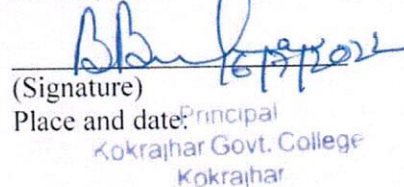 16/9/2022
(Signature)
Place and date:
Principal
Kokrajhar Govt. College
Kokrajhar